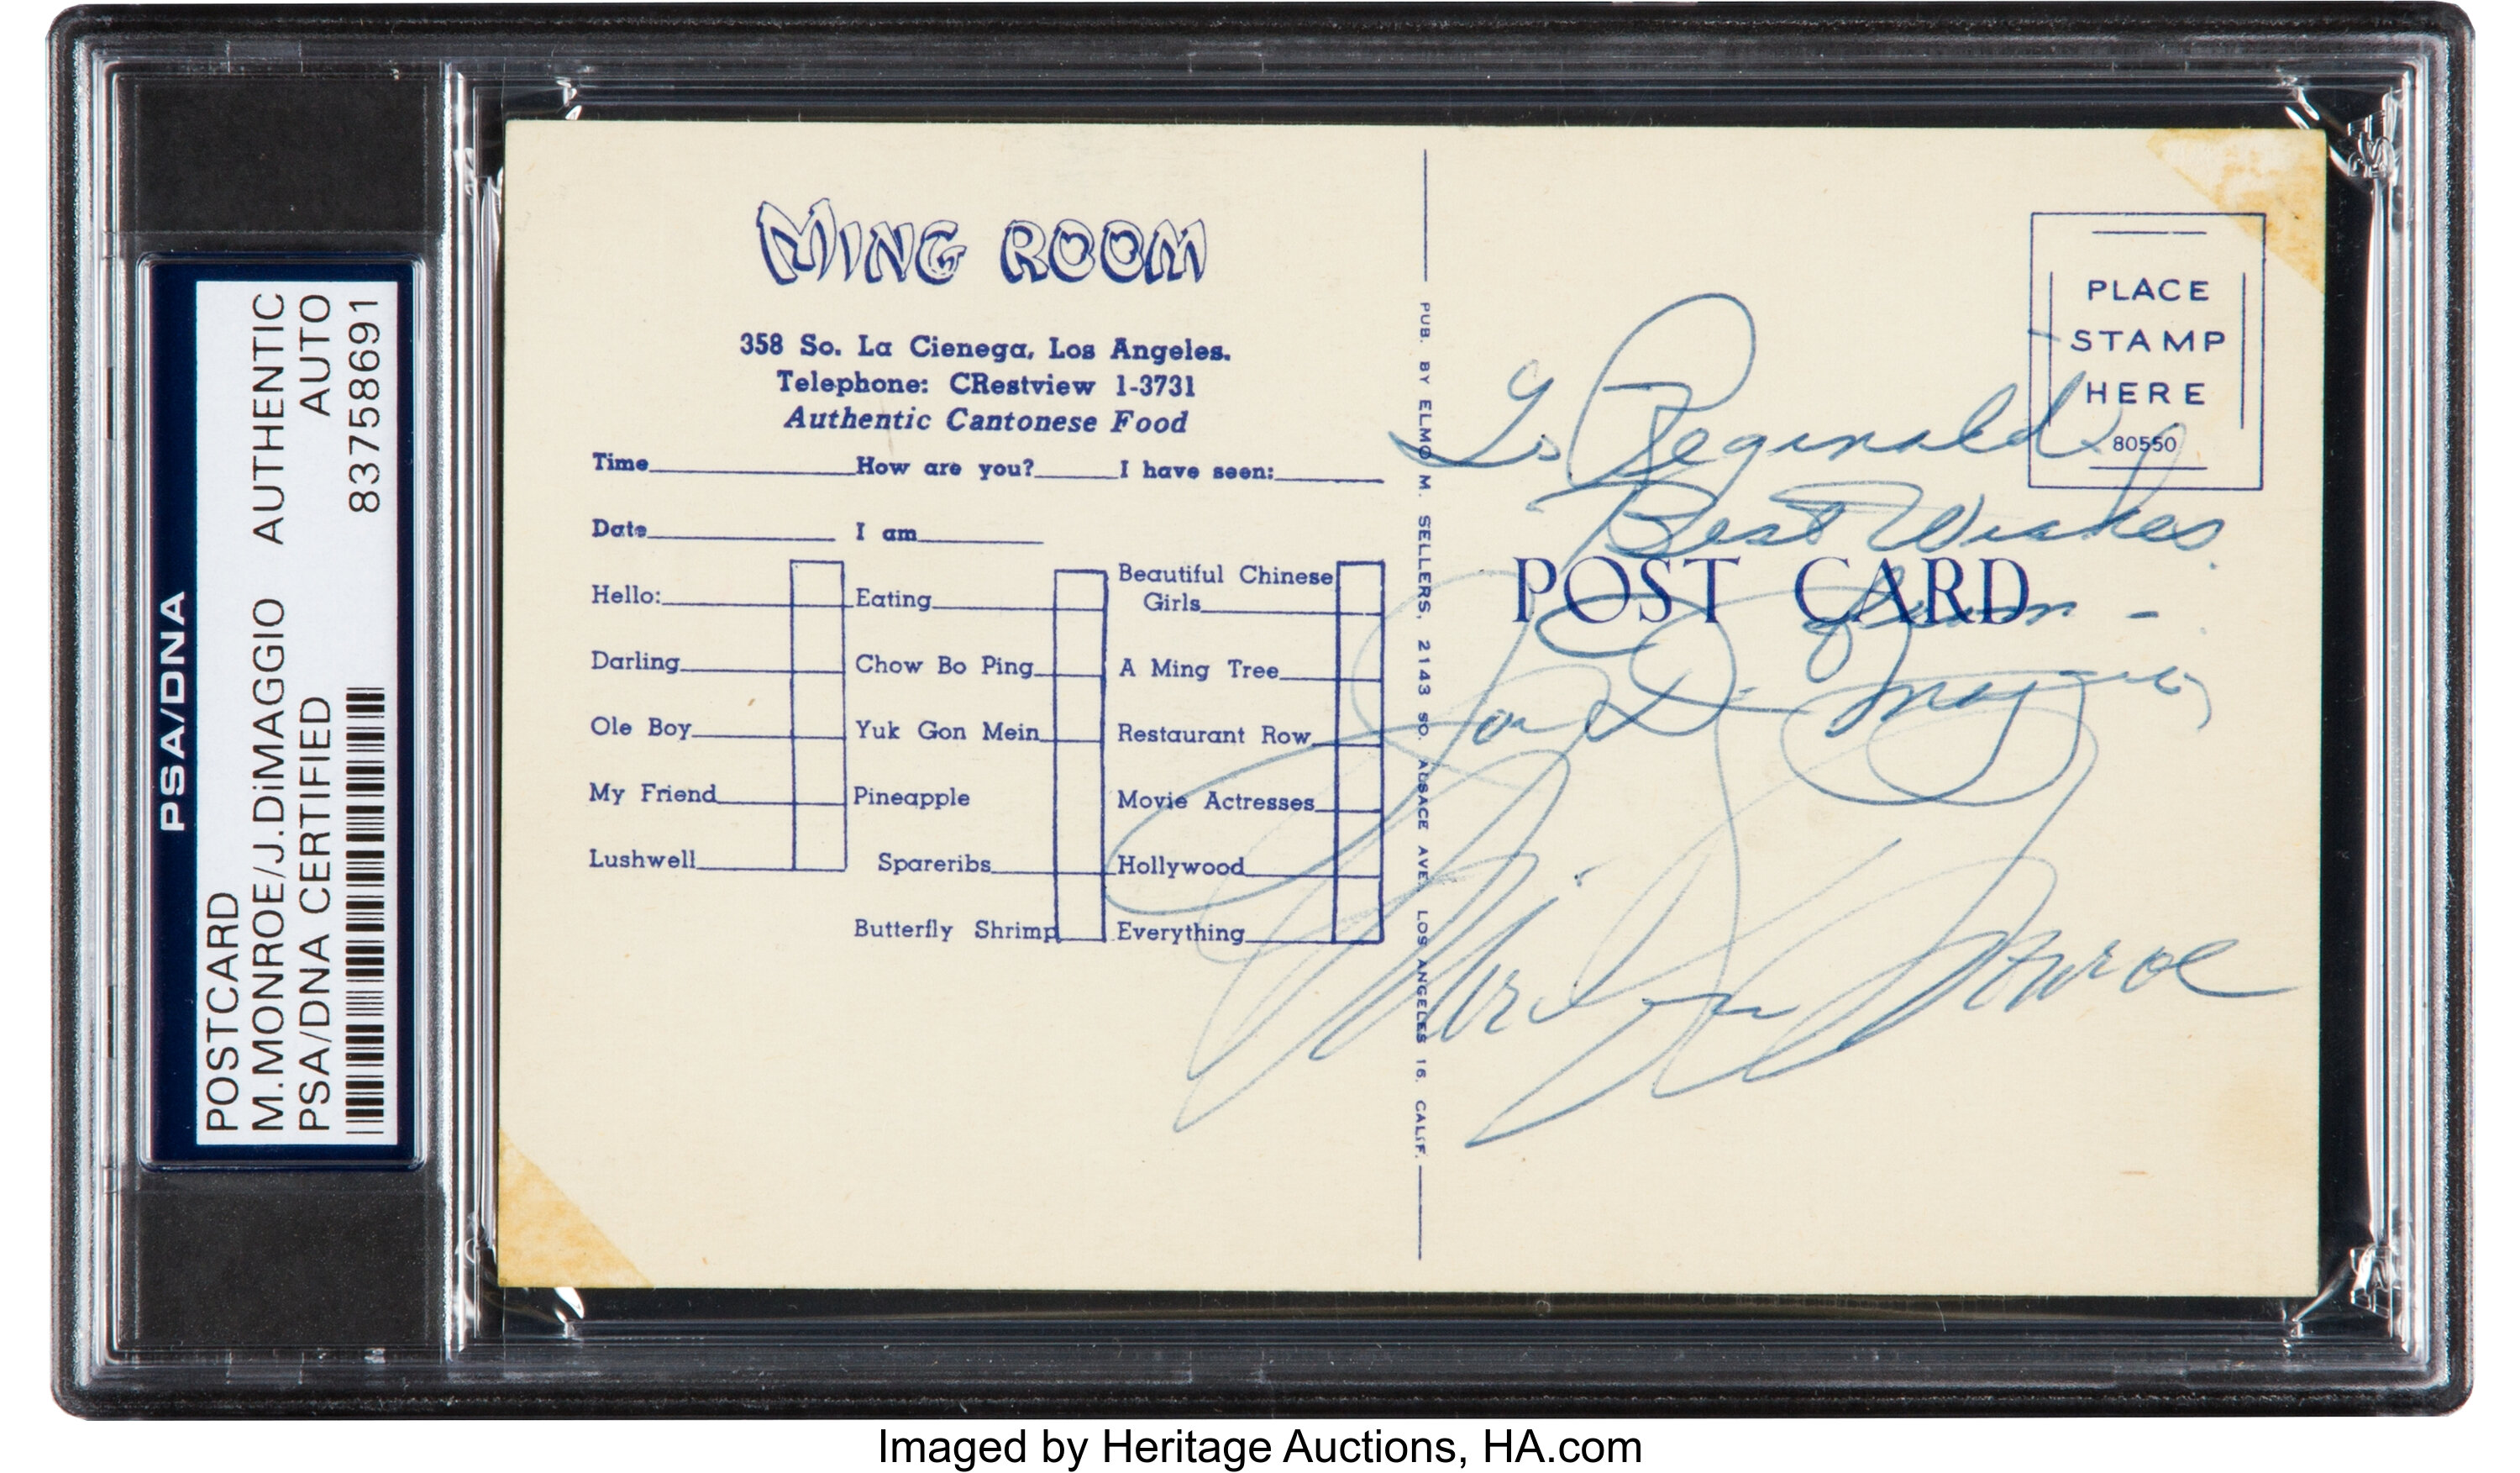 PSA/DNA
POSTCARD AUTHENTIC
M.MONROE/J.DiMAGGIO AUTO
PSA/DNA CERTIFIED 83758691
MING ROOM
358 So. La Cienega, Los Angeles.
Telephone: CRestview 1-3731
Authentic Cantonese Food
Time How are you? I have seen:
Date I am
Hello:
Darling
Ole Boy
My Friend
Lushwell
Eating
Chow Bo Ping
Yuk Gon Mein
Pineapple
Spareribs
Butterfly Shrimp
Beautiful Chinese
Girls
A Ming Tree
Restaurant Row
Movie Actresses
Hollywood
Everything
PUB. BY ELMO M. SELLERS, 2143 SO. ALSACE AVE. LOS ANGELES 16, CALIF.
PLACE
STAMP
HERE
80550
POST CARD
To Reginald
Best Wishes
from -
Joe DiMaggio
Marilyn Monroe
Imaged by Heritage Auctions, HA.com